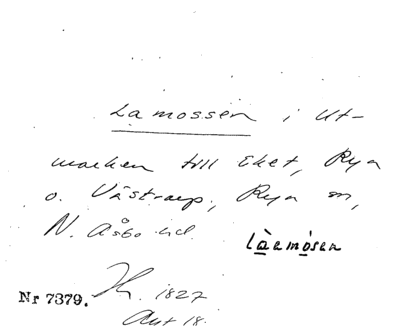 Lamossen i ut-
marken till Eket, Rya
o. Västrarp, Rya sn,
N. Åsbo hd.
làemòsen
Nr 7379. 1827
Akt 18.